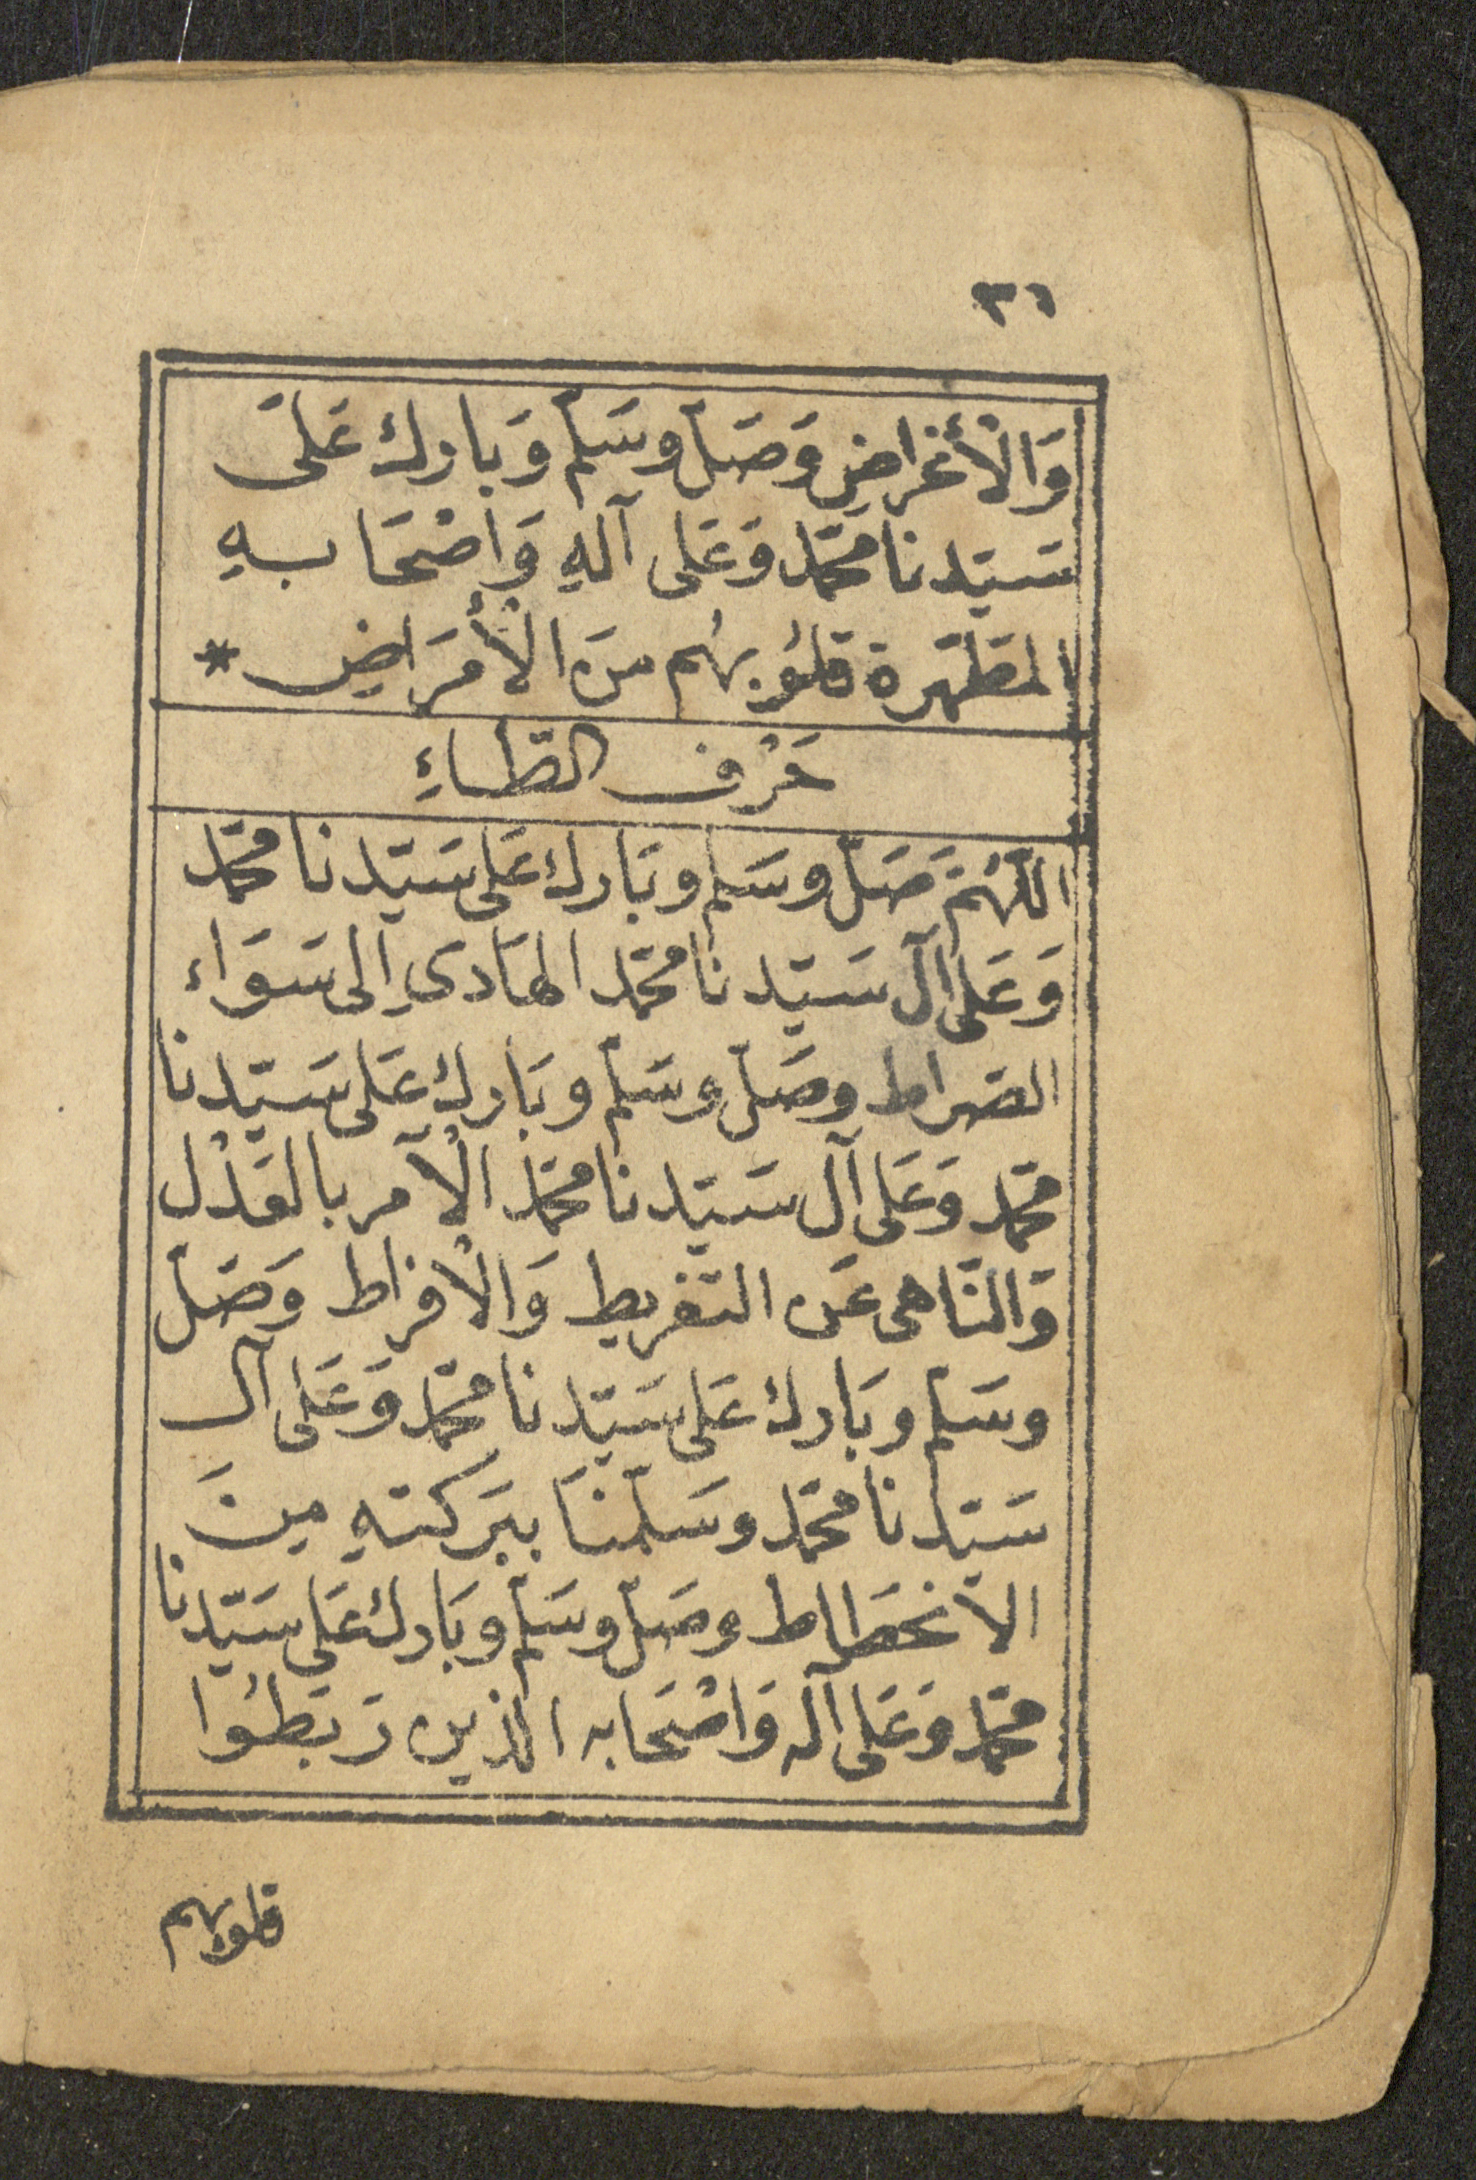 ٣٦
وَالْأَغراضِ وَصَلّ وسَلّم وَبارك عَلَى
سَيّدنا محَمّد وَعَلى آلهِ وَاَصْحَابهِ
المطَهّرة قلُوبهُم منَ الْأَمرَاضِ *
حَرْف الطّاءِ
اللّهُمَّ صَلّ وسَلم وبَارك عَلى سَيّدنا محمّد
وَعَلى آل سَيّدنا محمّد الهَادىِ إلى سَوَاء
الصّراط وصَلّ وسَلّم وبَارك عَلى سَيّدنا
محمّد وَعَلى آل سَيّدنا محمّد الْآمر بالعَدْل
وَالنّاهى عَن التّفريط وَالْافراط وَصَلّ
وسَلّم وبَارك عَلى سَيّدنا محمّد وَعَلى آل
سَيّدنا محمّد وسَلّمنَا ببَركتهِ مِنَ
الانحطَاط وصَلّ وسَلّم وبَارك عَلى سَيّدنا
محمّد وَعَلى آله وَاصْحَابه الذين رَبَطُوا
قلوبهم